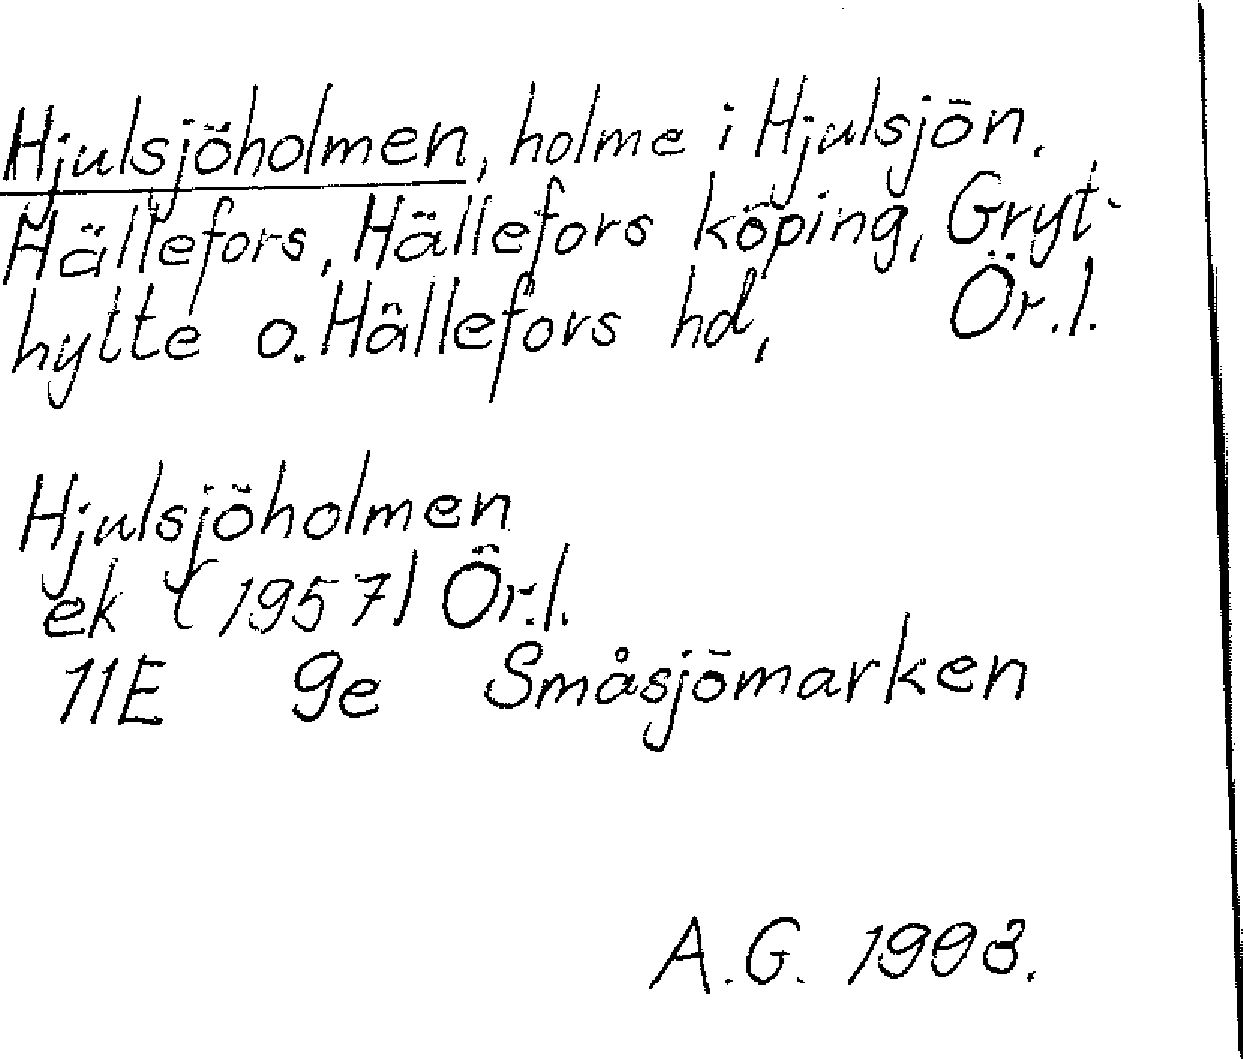 Hjulsjöholmen, holme i Hjulsjön.
Hällefors, Hällefors köping, Gryt-
hytte o. Hällefors hd, Ör.l.
Hjulsjöholmen
ek (1957) Ör.l.
11E 9e Småsjömarken
A.G. 1993.